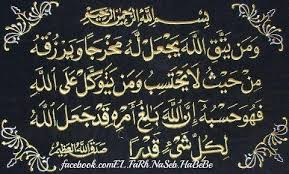 بِسْمِ اللَّهِ الرَّحْمَنِ الرَّحِيمِ
وَمَن يَتَّقِ اللَّهَ يَجْعَل لَّهُ مَخْرَجًا وَيَرْزُقْهُ
مِنْ حَيْثُ لَا يَحْتَسِبُ وَمَن يَتَوَكَّلْ عَلَى اللَّهِ
فَهُوَ حَسْبُهُ إِنَّ اللَّهَ بَالِغُ أَمْرِهِ قَدْ جَعَلَ اللَّهُ
لِكُلِّ شَيْءٍ قَدْرًا صدق الله العظيم
facebook.comEL.TaRh.NaSeb.HaBeBe